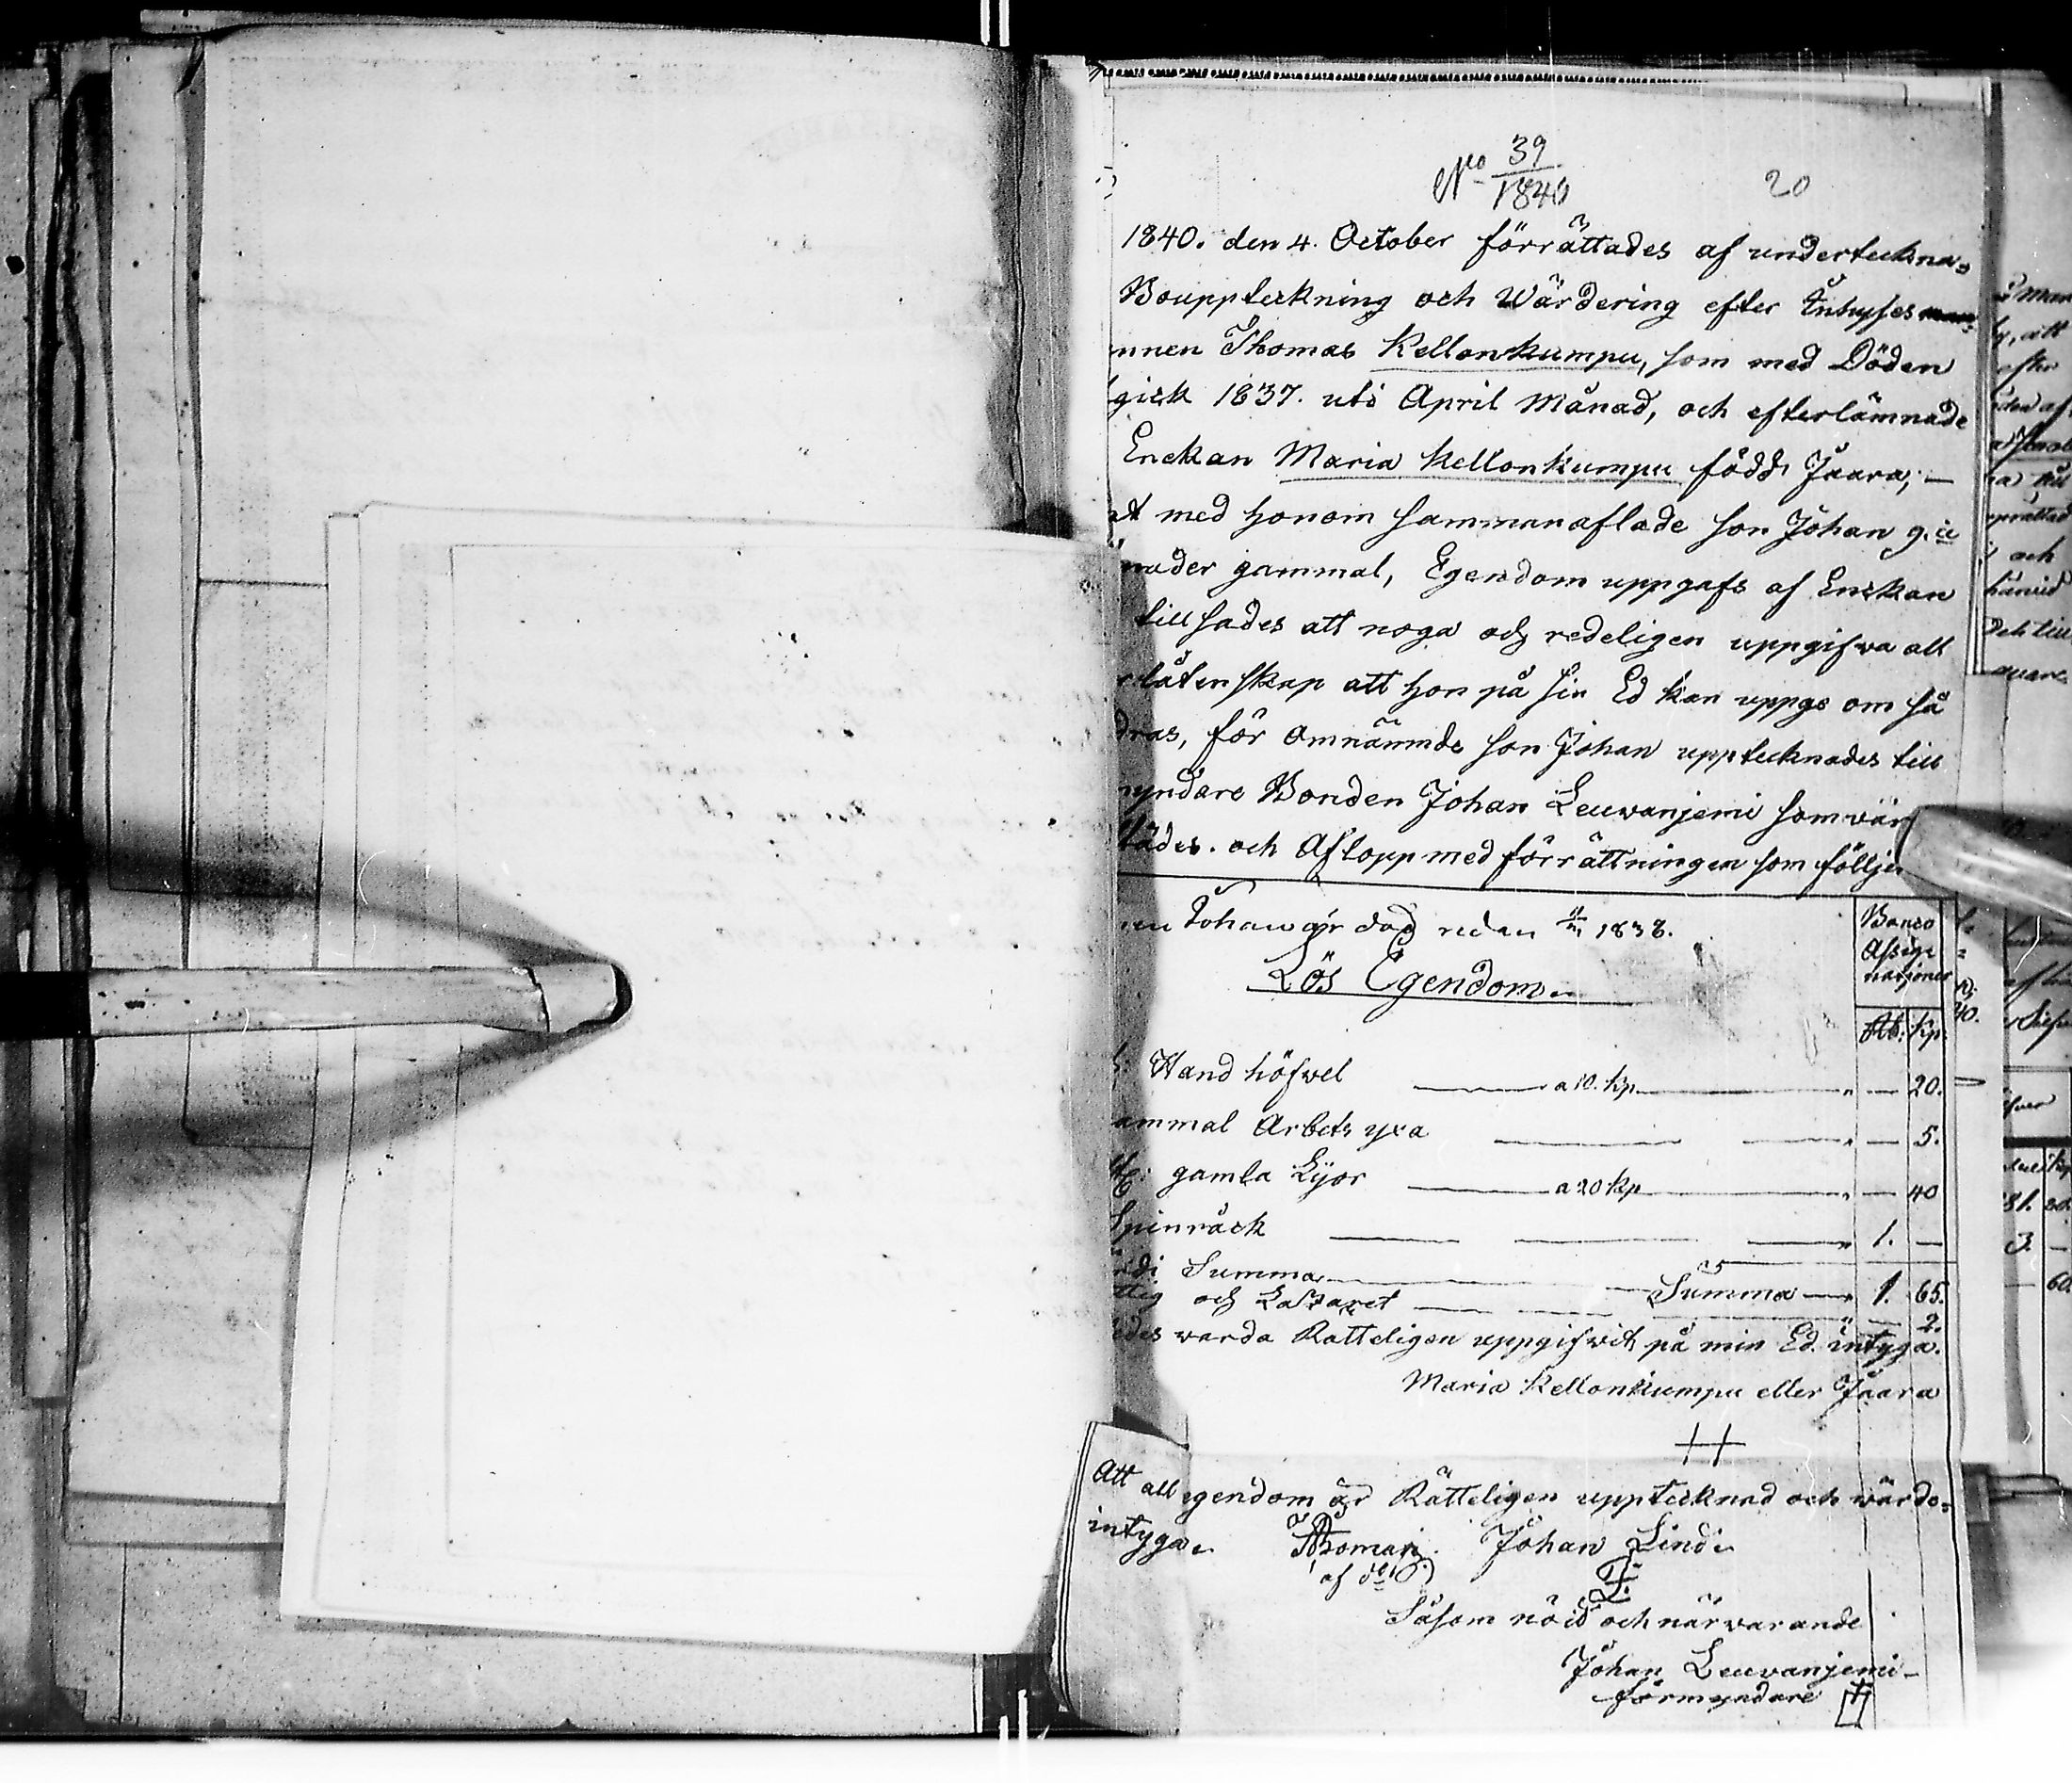 No 39
1840
20
1840. den 4. October förrättades af underteckna=
Bouppteckning och Wärdering efter Inhyses
nnen Thomas Kellonkumpu, som med Döden
gick 1837. uti April Månad, och efterlämnade
Enckan Maria Kellonkumpu född Jaara, —
med honom sammanaflade Son Johan 9.
nader gammal, Egendom uppgafs af Enckan
tillsades att noga och redeligen uppgifva all
låtenskap att hon på sin Ed kan uppge om så
dras, för Omnämnde Son Johan upptecknades till
myndare Bonden Johan Leuvanjemi som vär
städes. och Aflopp med förrättningen som följer
Johan är död redan 1838.
Banco
Assig
nazjoner
Lös Egendom.
Rb: Kp:
Hand höfwel — a 10. Kp — " — 20.
ammal Arbets yxa — — " — 5.
gamla Lijor — a 20 Kp — " — 40
Spinråck — — — " 1. —
Summa — Summa — " 1. 65.
och Lazaret — — " — 2.
edes varda Rätteligen uppgifvit på min Ed. intyga.
Maria Kellonkumpu eller Jaara
Att all egendom är Rätteligen upptecknad och wärde=
intyga. Johan Lind.
Såsom nöid och närvarande
Johan Leuvanjemi
förmyndare